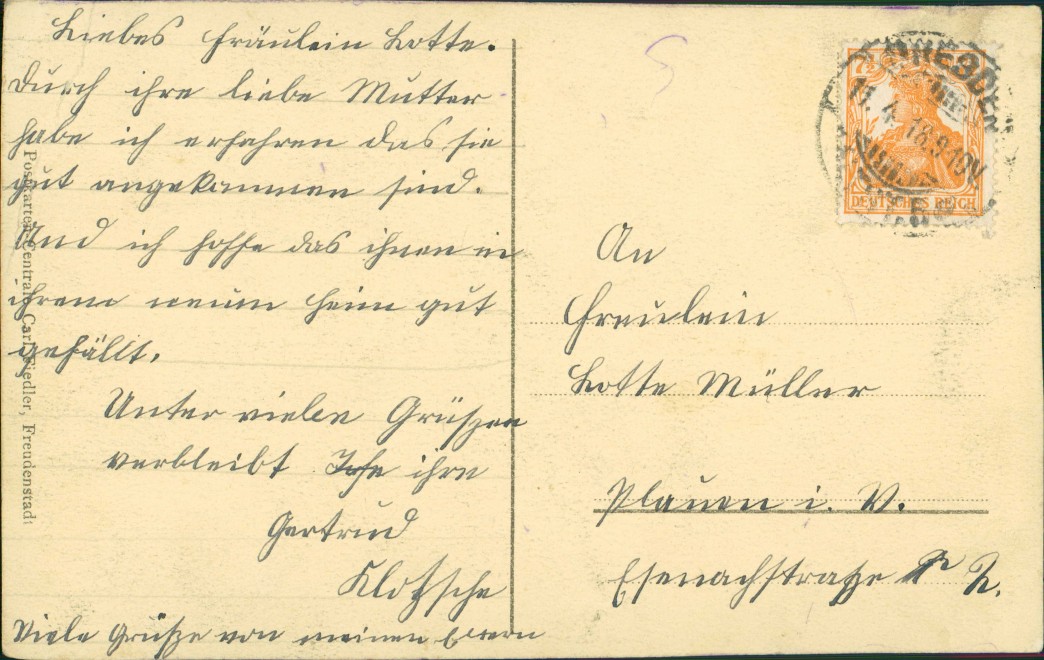 Liebes Fräulein Lotte.
Durch ihre liebe Mutter
habe ich erfahren das sie
gut angekommen sind.
Und ich hoffe das ihnen in
ihrem neuen heim gut
gefällt.
Unter vielen Grüßen
verbleibt ihre
Gertrud
Klotzsche
Viele Grüße von meinen Eltern
Postkarten-Centrale Carl Fiedler, Freudenstadt
DRESDEN
11. 4. 18. 9-10V
7½
DEUTSCHES REICH
An
Freulein
Lotte Müller
Plauen i. V.
Esenachstraße